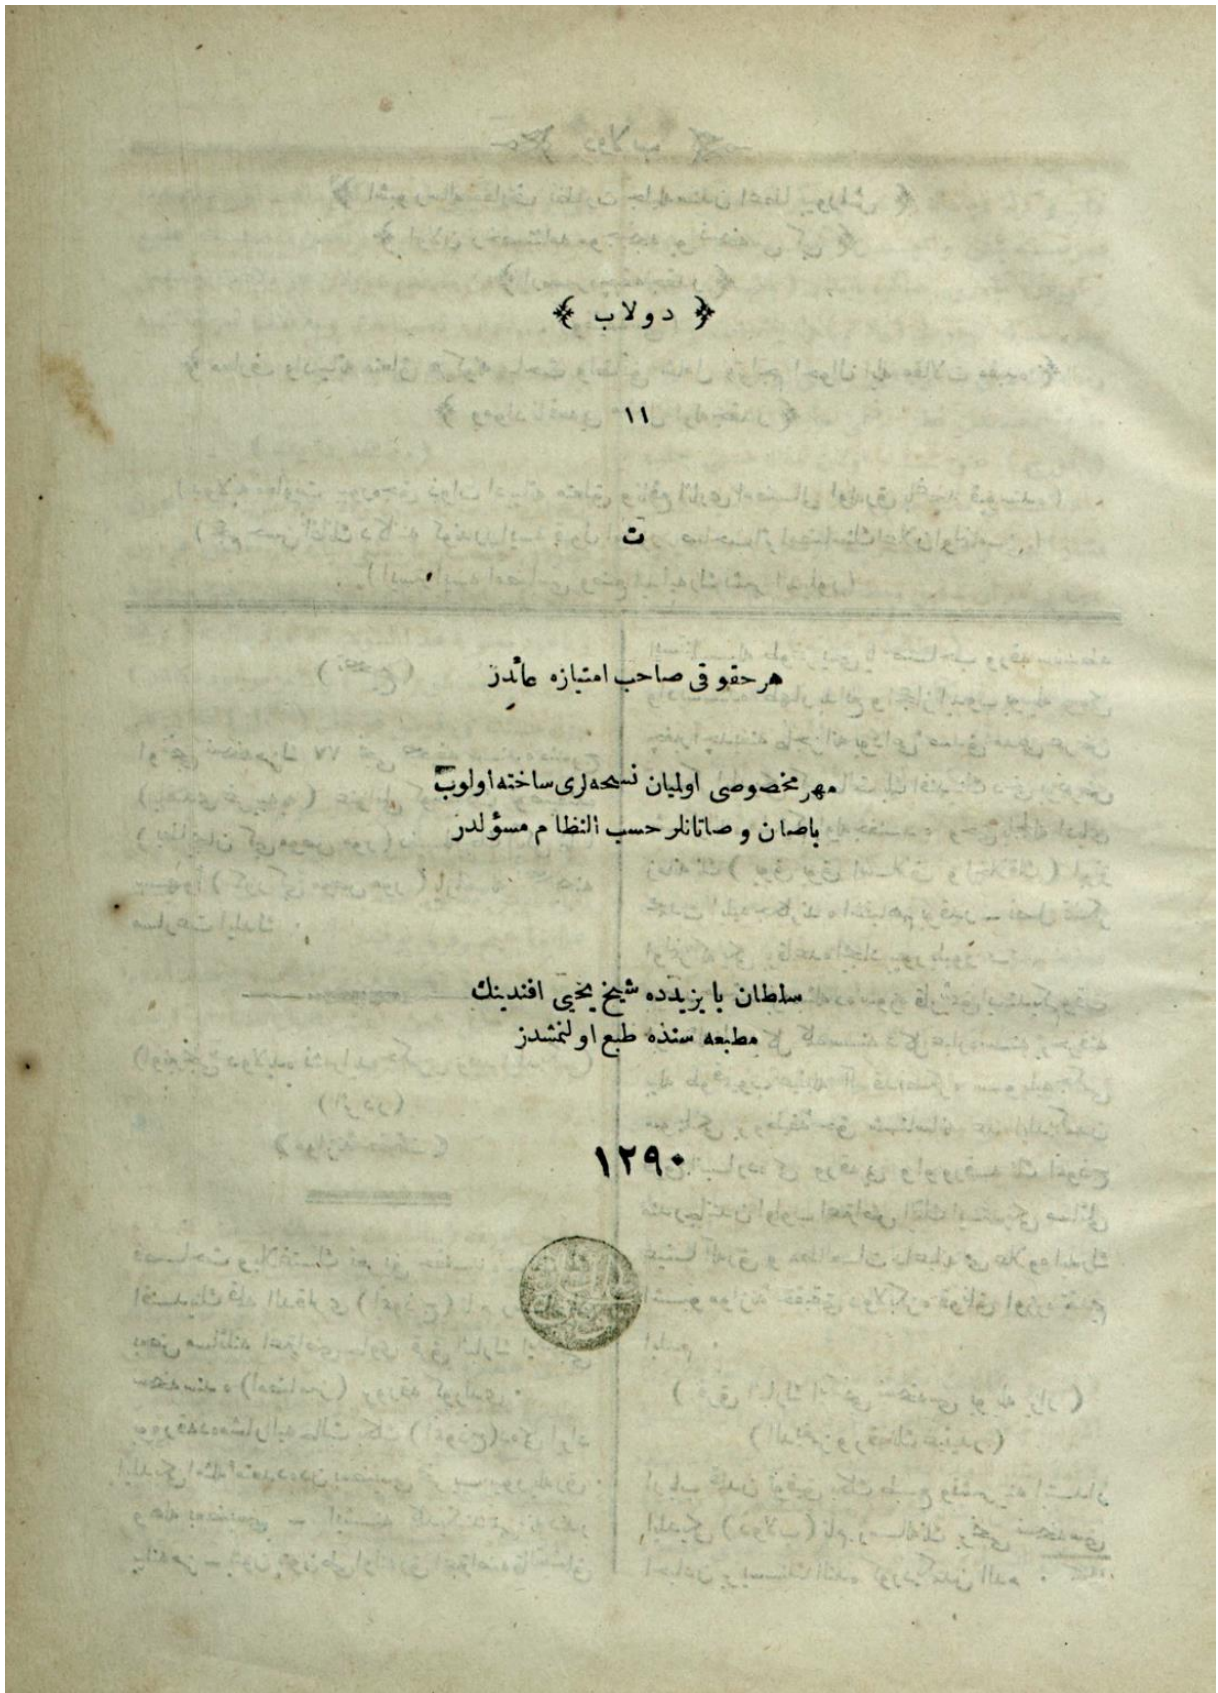 ﴿ دولاب ﴾
١١
ت
هر حقوقی صاحب امتیازه عائددر
مهر مخصوصی اولمیان نسخه‌لری ساخته اولوب
باصان و صاتانلر حسب النظام مسؤلدر
سلطان بایزیدده شیخ یحیی افندینك
مطبعه سنده طبع اولنمشدر
١٢٩٠